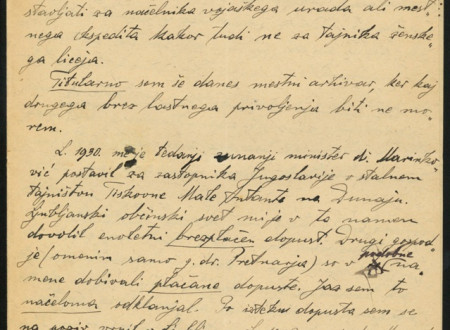 stavljati za načelnika vojaškega urada ali mest-
nega ekspedita kakor tudi ne za tajnika ženske-
ga liceja.
Titularno sem še danes mestni arhivar, ker kaj
drugega brez lastnega privoljenja biti ne mo-
rem.
L. 1930. me je tedanji zunanji minister dr. Marinko-
vić postavil za zastopnika Jugoslavije v stalnem
tajništvu Tiskovne Male Antante na Dunaju.
Ljubljanski občinski svet mi je v to namen
dovolil enoletni brezplačen dopust. Drugi gospod-
je (omenim samo g. dr. Tretnarja) so v podobne na-
mene dobivali plačane dopuste. Jaz sem to
načeloma odklanjal. Po izteku dopusta sem se
na poziv vrnil v